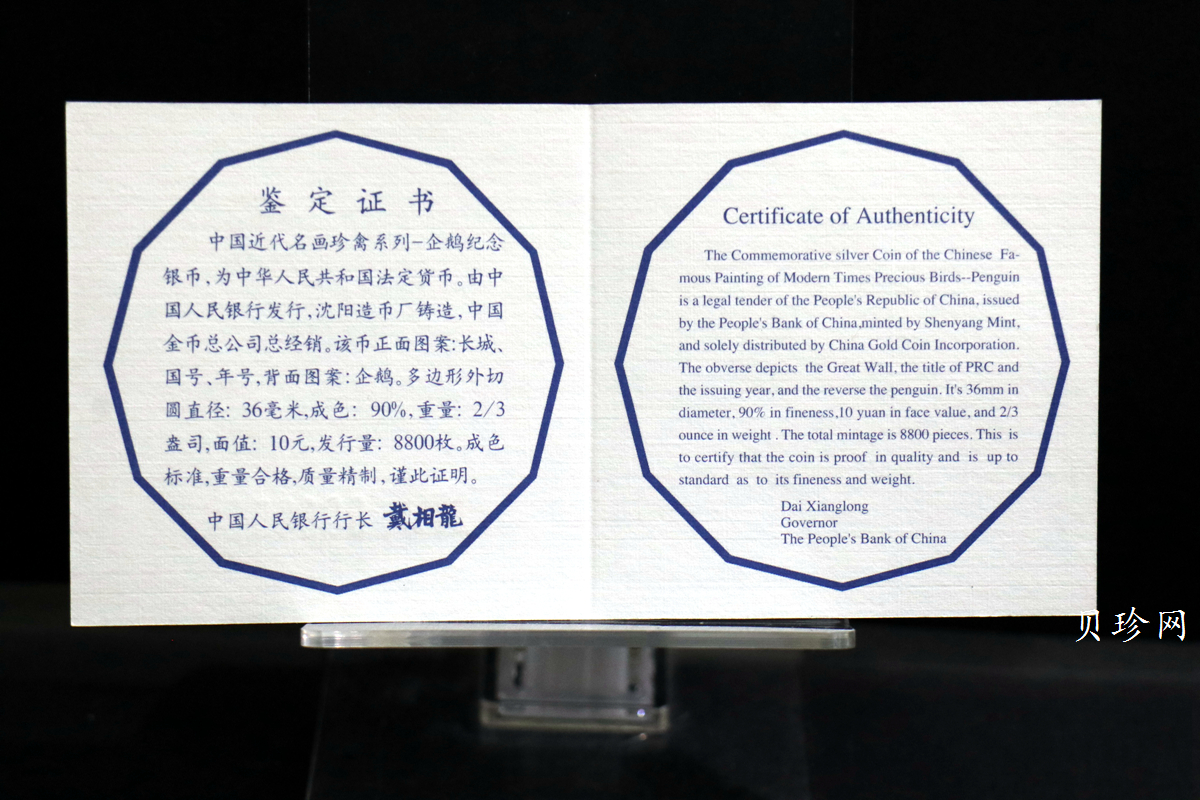 鉴定证书
中国近代名画珍禽系列-企鹅纪念
银币,为中华人民共和国法定货币。由中
国人民银行发行,沈阳造币厂铸造,中国
金币总公司总经销。该币正面图案:长城、
国号、年号,背面图案:企鹅。多边形外切
圆直径: 36毫米,成色: 90%,重量: 2/3
盎司,面值: 10元,发行量: 8800枚。成色
标准,重量合格,质量精制,谨此证明。
中国人民银行行长 戴相龍
Certificate of Authenticity
The Commemorative silver Coin of the Chinese Fa-
mous Painting of Modern Times Precious Birds--Penguin
is a legal tender of the People's Republic of China, issued
by the People's Bank of China,minted by Shenyang Mint,
and solely distributed by China Gold Coin Incorporation.
The obverse depicts the Great Wall, the title of PRC and
the issuing year, and the reverse the penguin. It's 36mm in
diameter, 90% in fineness,10 yuan in face value, and 2/3
ounce in weight . The total mintage is 8800 pieces. This is
to certify that the coin is proof in quality and is up to
standard as to its fineness and weight.
Dai Xianglong
Governor
The People's Bank of China
贝珍网